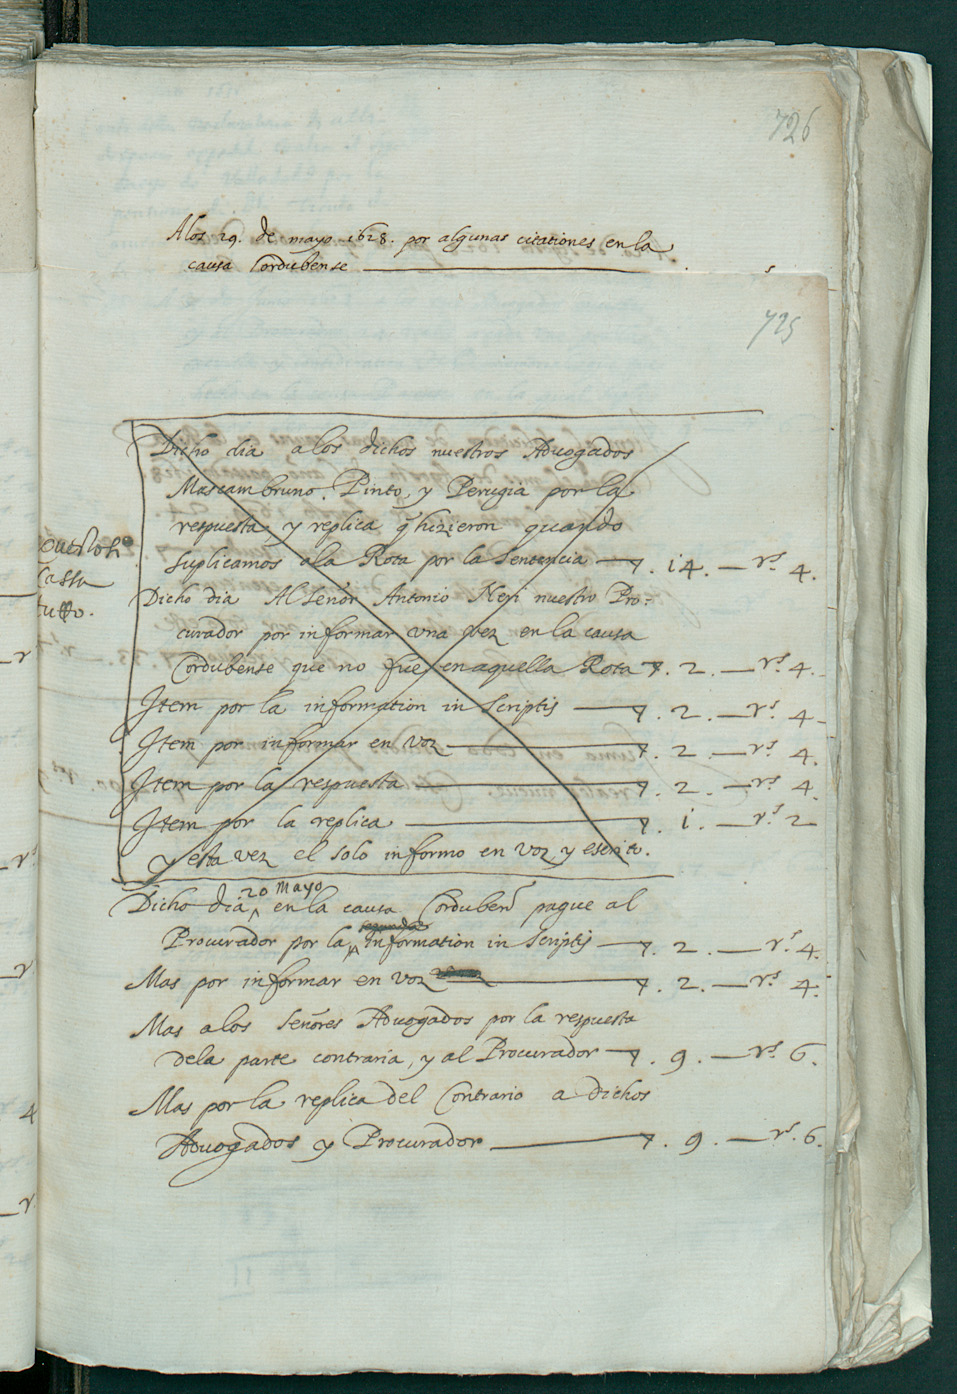 726
A los 29. de mayo 1628. por algunas citationes en la
causa Cordubense
725
Dicho dia a los dichos nuestros Advogados
Mascambruno. Pinto, y Perugia por la
respuesta, y replica q̃ hizieron quando
suplicamos a la Rota por la Sentencia 7. 14. rs. 4.
Cassa
tutto.
Dicho dia Al Señor Antonio Neri nuestro Pro:
curador por informar vna vez en la causa
Cordubense que no fue en aquella Rota 7. 2. rs. 4.
Item por la information in Scriptis 7. 2. rs. 4
Item por informar en voz 7. 2. rs. 4.
Item por la respuesta 7. 2. rs. 4.
Item por la replica 7. 1. rs. 2
y esta vez el solo informo en voz y escrito.
20 Mayo
Dicho dia en la causa Corduben pague al
segunda
Procurador por la Information in Scriptis 7. 2. rs. 4.
Mas por informar en voz 7. 2. rs. 4.
Mas a los Señores Advogados por la respuesta
dela parte contraria, y al Procurador 7. 9. rs. 6.
Mas por la replica del Contrario a dichos
Advogados y Procurador 7. 9. rs. 6.